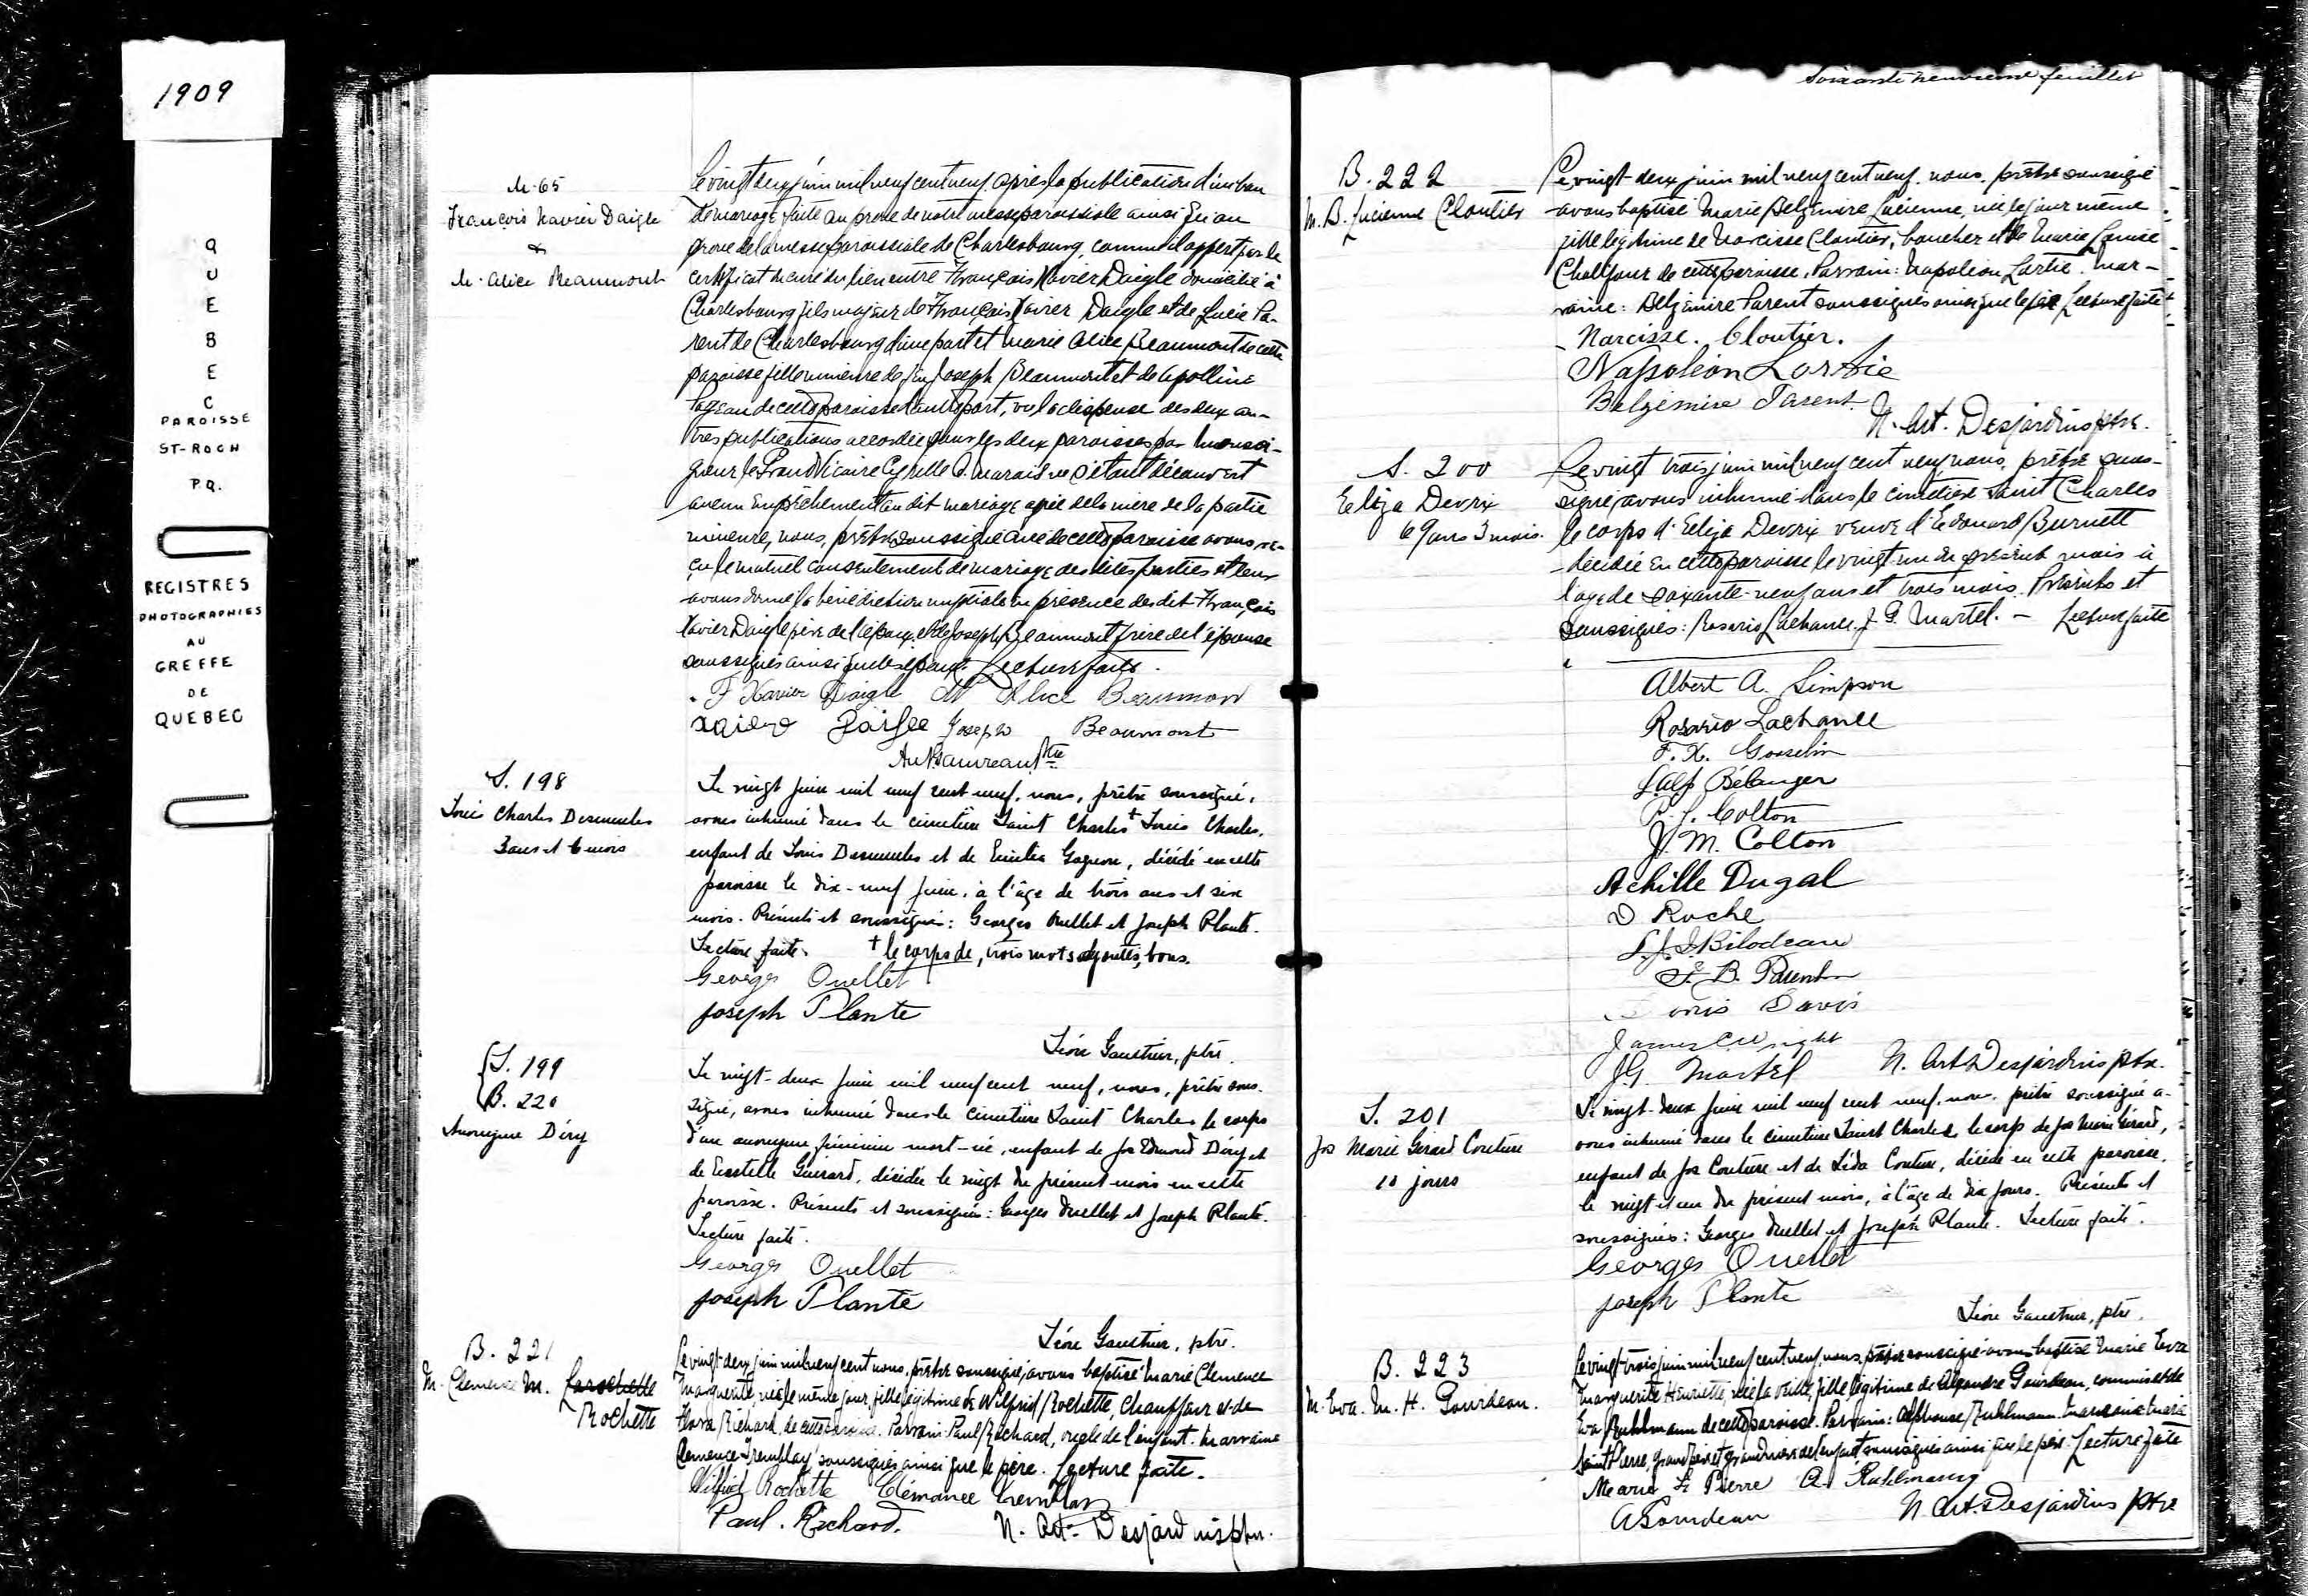 1909
QUEBEC
PAROISSE
ST-ROCH
P.Q.
REGISTRES
PHOTOGRAPHIES
AU
GREFFE
DE
QUEBEC
M. 65
François Xavier Daigle
&
M. Alice Beaumont
Le vingt deux juin mil neuf cent neuf, après la publication d'un ban
de mariage faite au prône de notre messe paroissiale ainsi qu'au
prône de la messe paroissiale de Charlesbourg, comme il appert par le
certificat du curé du lieu entre François Xavier Daigle domicilié à
Charlesbourg fils majeur de François Xavier Daigle et de Lucie Pa-
rent de Charlesbourg d'une part et Marie Alice Beaumont de cette
paroisse fille mineure de feu Joseph Beaumont et de Apolline
Pageau de cette paroisse d'autre part, vu la dispense des deux au-
tres publications accordée pour les deux paroisses par Monsei-
gneur le Grand Vicaire Cyrille A. Marois ne s'étant découvert
aucun empêchement au dit mariage agréé de la mère de la partie
mineure, nous, prêtre soussigné curé de cette paroisse avons re-
çu le mutuel consentement de mariage des dites parties et leur
avons donné la bénédiction nuptiale en présence des dit François
Xavier Daigle père de l'époux, et de Joseph Beaumont frère de l'épouse
soussignés ainsi que les époux. Lecture faite.
F Xavier Daigle M Alice Beaumon
Joseph Beaumont
S. 198
Louis Charles Desmeules
3 ans et 6 mois
Le vingt juin mil neuf cent neuf, nous, prêtre soussigné,
avons inhumé dans le cimetière Saint Charles + Louis Charles,
enfant de Louis Desmeules et de Emilia Gagnon, décédé en cette
paroisse le dix-neuf juin, à l'âge de trois ans et six
mois. Présents et soussignés: Georges Ouellet et Joseph Plante.
Lecture faite. + le corps de, trois mots ajoutés, bons.
Georges Ouellet
Joseph Plante
Léon Gauthier, ptre.
S. 199
B. 220
Anonyme Déry
Le vingt-deux juin mil neuf cent neuf, nous, prêtre sous-
signé, avons inhumé dans le cimetière Saint Charles le corps
d'une anonyme féminin mort-né, enfant de Jos Edmond Déry et
de Guérard, décédée le vingt du présent mois en cette
paroisse. Présents et soussignés: Georges Ouellet et Joseph Plante.
Lecture faite.
Georges Ouellet
Joseph Plante
Léon Gauthier, ptre.
B. 221
M. Clemence M. Larochelle
Rochette
Le vingt-deux juin mil neuf cent nous, prêtre soussigné, avons baptisé Marie Clemence
Marguerite, née le même jour, fille légitime de Wilfrid Rochette, chauffeur et de
Flora Richard, de cette paroisse. Parrain: Paul Richard, oncle de l'enfant. Marraine
Clemence Tremblay soussignés ainsi que le père. Lecture faite.
Wilfrid Rochette Clémance Tremblay
Paul. Richard. N. Art. Desjardins ptre.
soixante neuvieme feuillet
B. 222
M. B. Lucienne Cloutier
Le vingt-deux juin mil neuf cent neuf, nous, prêtre soussigné
avons baptisé Marie Belzémire Lucienne, née le jour même
fille légitime de Narcisse Cloutier, boucher et de Marie Louise
de cette paroisse. Parrain: Napoléon Lortie. Mar-
raine: Belzémire Parent soussignés ainsi que le père. Lecture faite.
Narcisse. Cloutier.
Napoléon Lortie
Belzémire Parent.
N. Art. Desjardins ptre.
S. 200
Eliza Devrix
69 ans 3 mois.
Le vingt trois juin mil neuf cent neuf, nous, prêtre sous-
signé, avons inhumé dans le cimetière Saint Charles
le corps d'Eliza Devrix veuve d'Edouard Burnett
décédée en cette paroisse le vingt-un du présent mois à
l'âge de soixante-neuf ans et trois mois. Présents et
soussignés: Rosario Lachance, J. G. Martel. — Lecture faite
Albert A. Simpson
Rosario Lachance
F. X. Gosselin
J Alf Bélanger
P. J. Colton
J. M. Colton
Achille Dugal
D Roche
Bilodeau
J. E. B. Parent
Davis
James C Wright
J.G. Martel N. Art Desjardins ptre.
S. 201
Jos Marie Gérard Couture
10 jours
Le vingt-deux juin mil neuf cent neuf, nous, prêtre soussigné a-
vons inhumé dans le cimetière Saint Charles le corps de Jos Marie Gérard,
enfant de Jos Couture et de Léda Couture, décédé en cette paroisse,
le vingt et un du présent mois, à l'âge de dix jours. Présents et
soussignés: Georges Ouellet et Joseph Plante. Lecture faite.
Georges Ouellet
Joseph Plante
Léon Gauthier, ptre.
B. 223
M. Eva. M. H. Gourdeau.
Le vingt-trois juin mil neuf cent neuf, nous, prêtre soussigné avons baptisé Marie Eva
Marguerite Henriette, née la veille, fille légitime de Gourdeau, commis et de
Eva Ruhlmann de cette paroisse. Parrain: Alphonse Ruhlmann. Marraine Marie
Saint Pierre, grand père et grand mère de l'enfant, soussignés ainsi que le père. Lecture faite
Marie St Pierre A. Ruhlmann
A Gourdeau N Art. Desjardins ptre